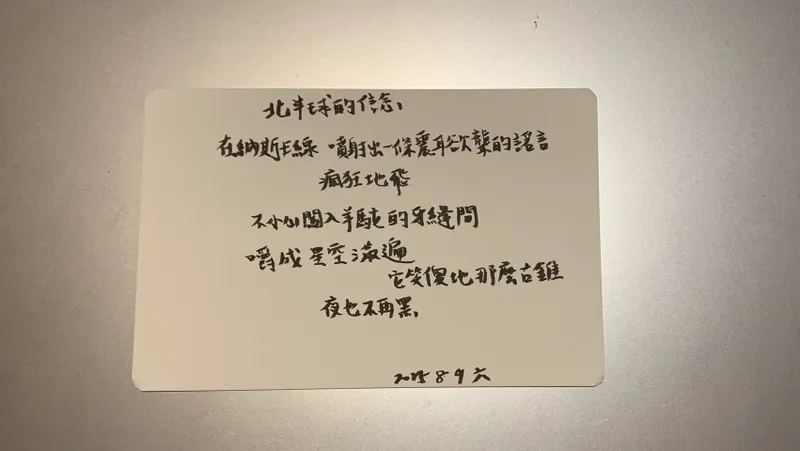 北半球的信念、
在納斯卡線 噴射出一條震耳欲聾的謠言
瘋狂地飛
不小心闖入羊駝的牙縫間
嚼成星空滿遍
它笑傻地那麼古錐
夜也不再黑、
2015 8 9 六